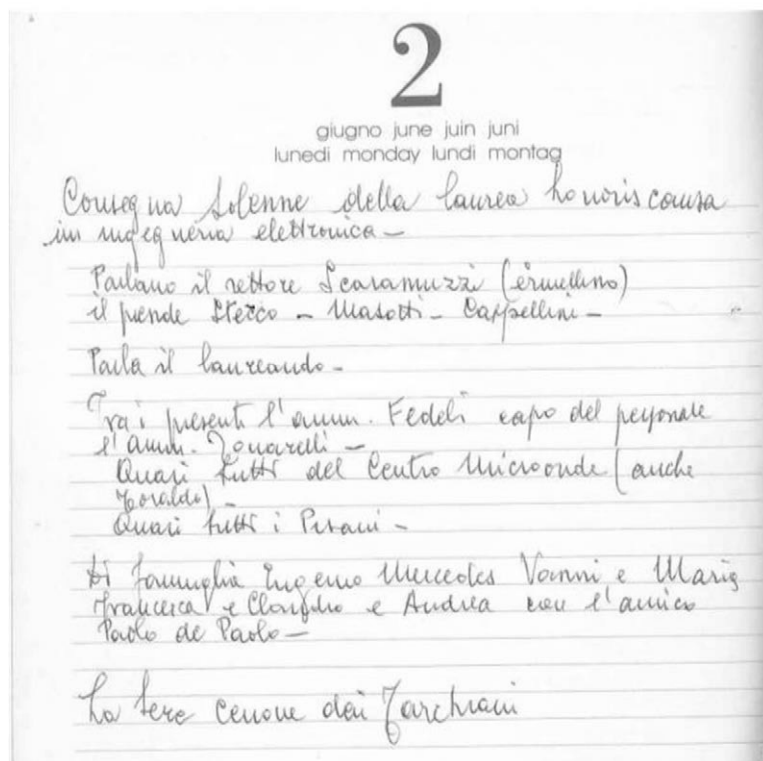 2
giugno june juin juni
lunedi monday lundi montag
Consegna solenne della laurea honoris causa
in ingegneria elettronica -
Parlano il rettore Scaramuzzi (ermellino)
il preside Stecco - Masotti - Cappellini -
Parla il laureando -
Tra i presenti l'amm. Fedeli capo del personale
l'amm.
Quasi tutti del Centro Microonde (anche
Toraldo) -
Quasi tutti i Pisani -
Di famiglia Eugenio Mercedes Vanni e Maria
Francesca e Claudio e Andrea con l'amico
Paolo de Paolo -
La sera cenone dai Tarchiani